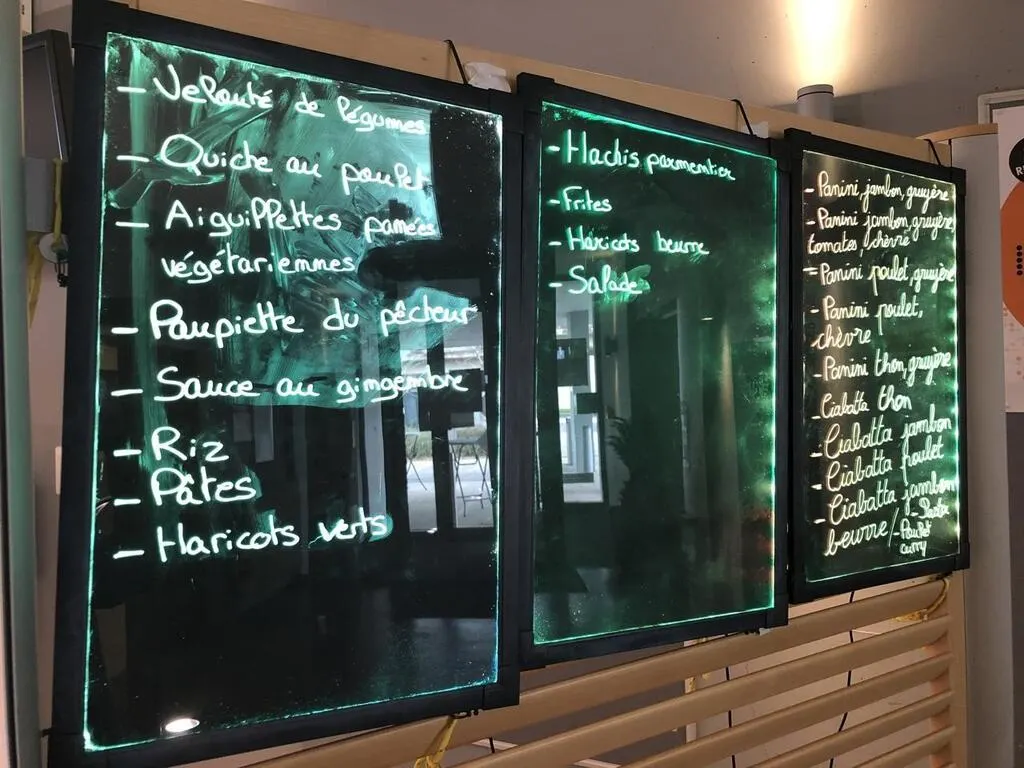 - Velouté de légumes
- Quiche au poulet
- Aiguillettes panées
végétariennes
- Paupiette du pêcheur
- Sauce au gingembre
- Riz
- Pâtes
- Haricots verts
- Hachis parmentier
- Frites
- Haricots beurre
- Salade
- Panini jambon, gruyère
- Panini jambon, gruyère,
tomates, chèvre
- Panini poulet, gruyère
- Panini poulet,
chèvre
- Panini thon, gruyère
- Ciabatta thon
- Ciabatta jambon
- Ciabatta poulet
- Ciabatta jambon
beurre
- Poulet
curry